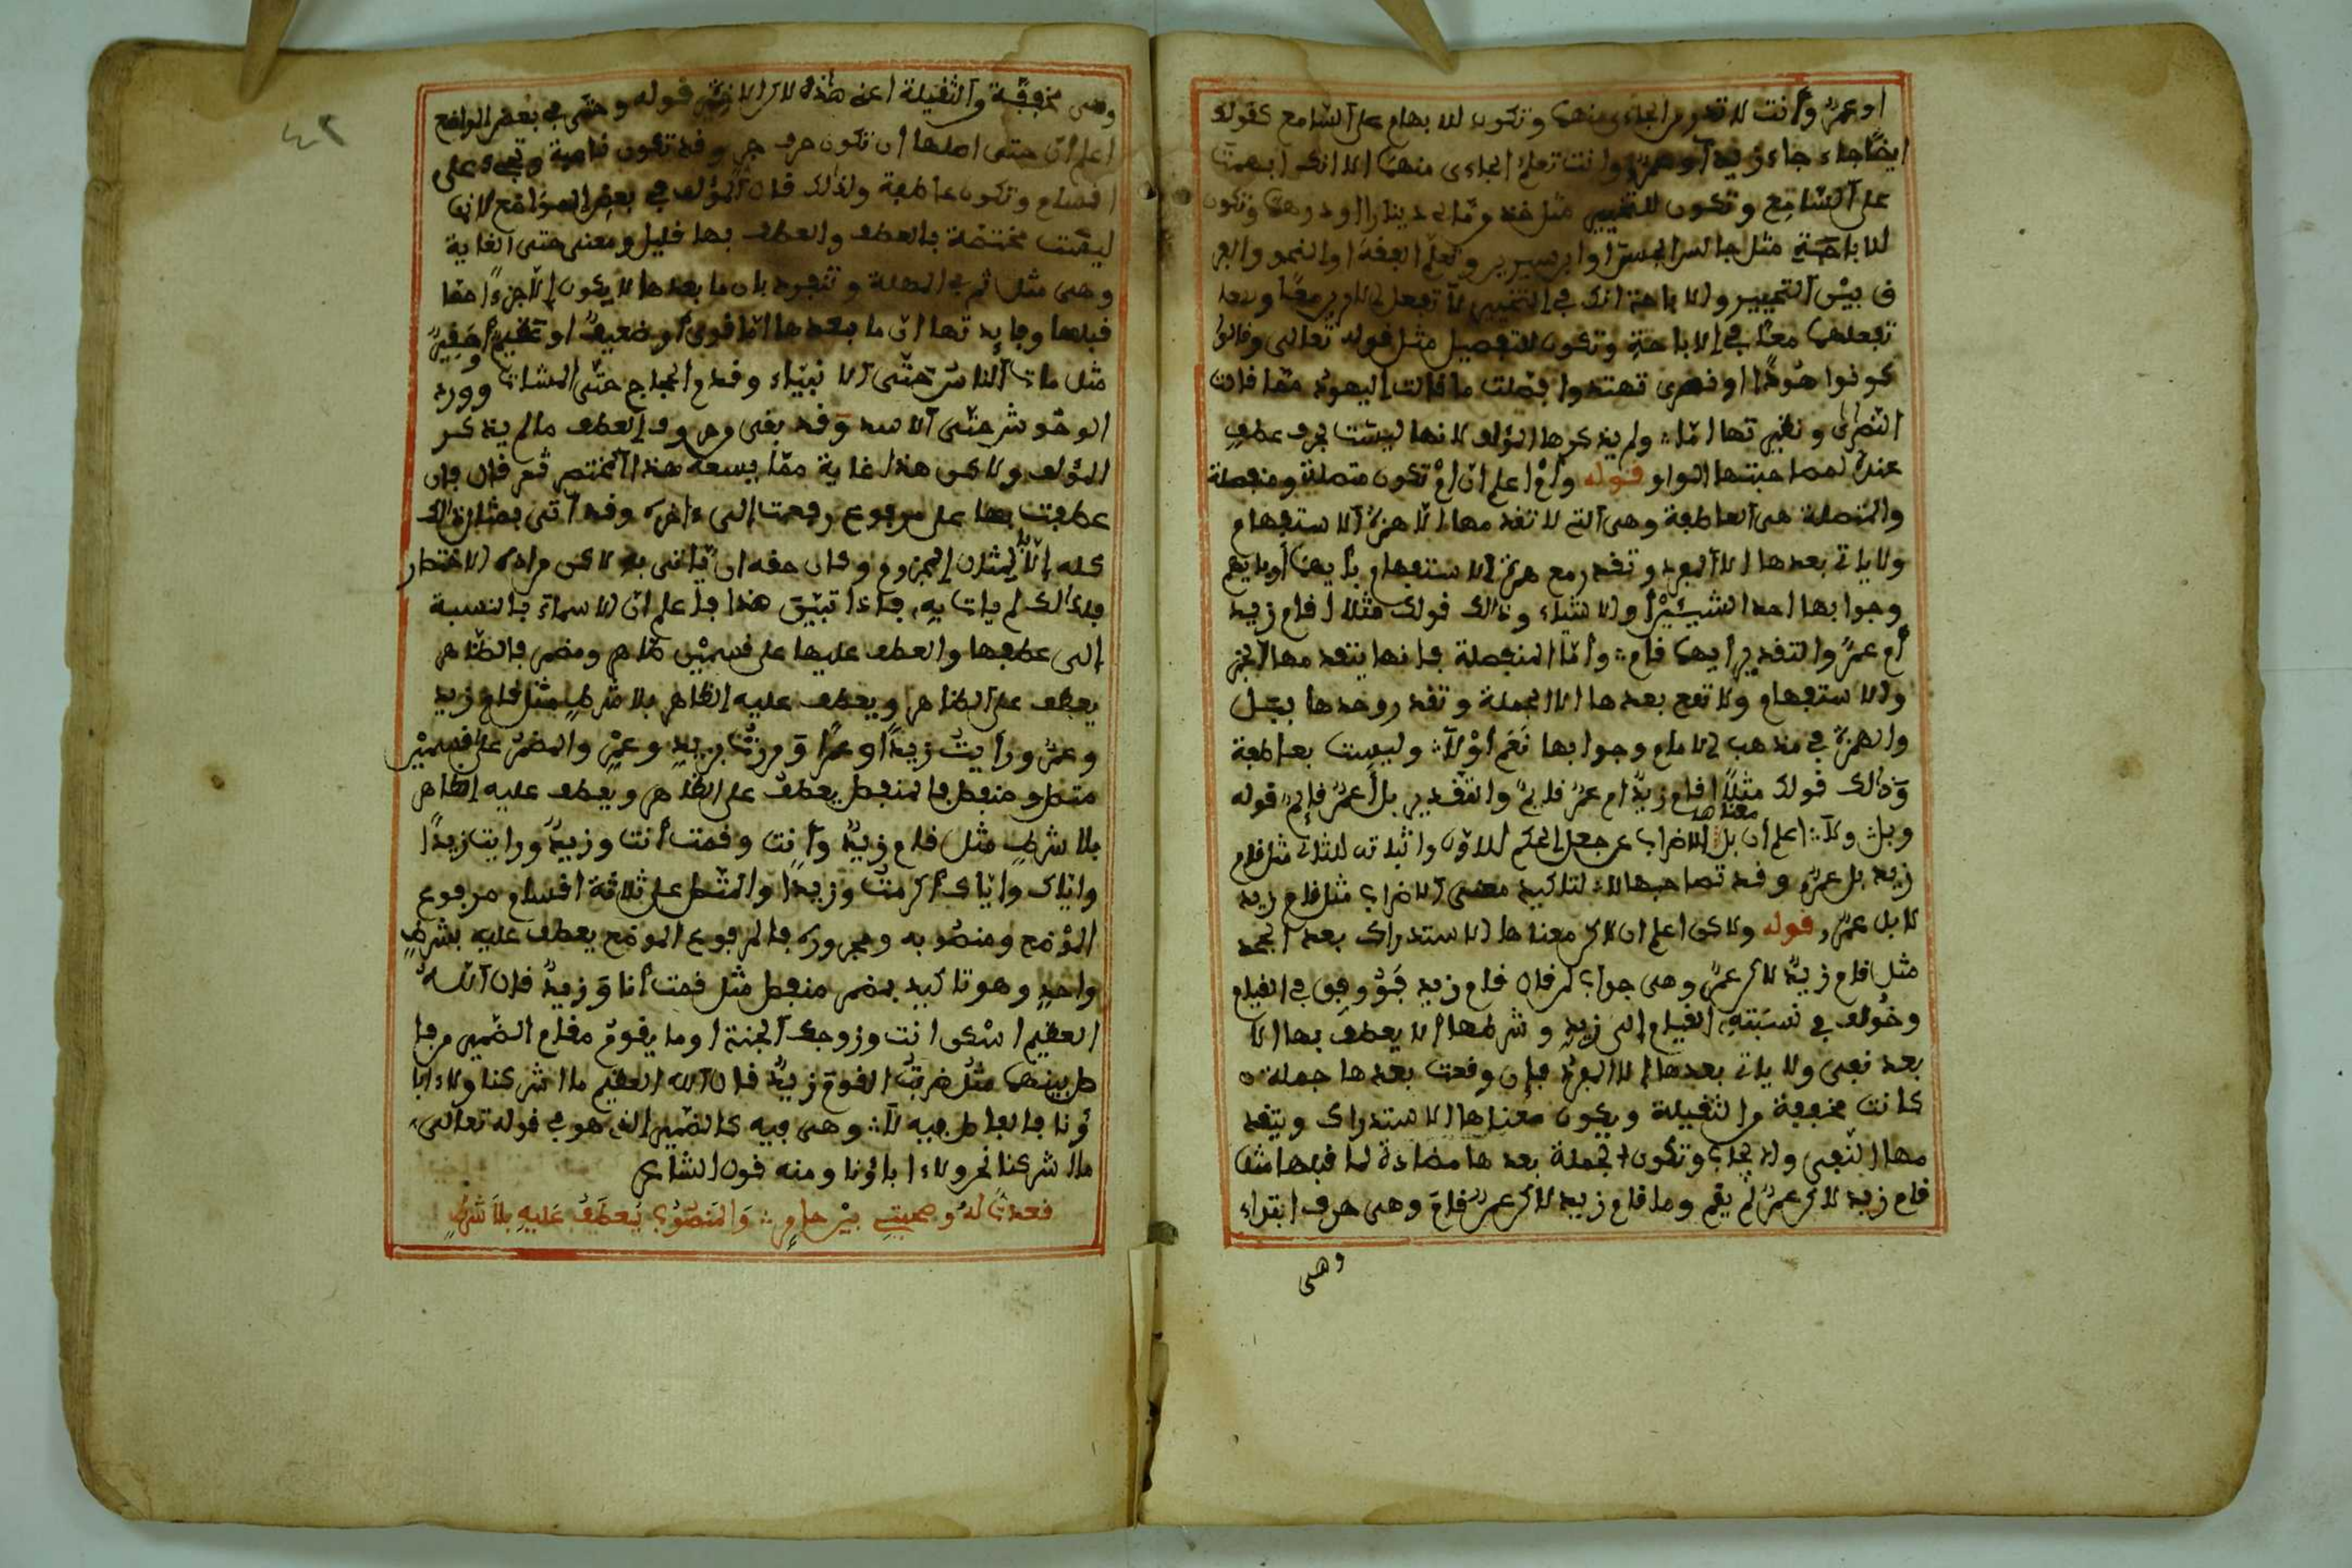 او عمرٌو وأنت لا تدري الجاءي منهما وتكون للابهام على السّامع كقولك
ايضًا جاء جاء زيد أو عمرو وانت تعلم الجاءى منهما الا انك ابهمت
على السّامع وتكون للتخيير مثل خذ من مالى دينارا او درهما وتكون
للاباحة مثل جالس الحسن او ابن سيرين وتعلّم الفقه او النحو والفر
ق بيْن التخيير والاباحة انك في التخيير لا تجعل الامرين معًا وقد
تجعلهما معًا في الاباحة وتكون للتفصيل مثل قوله تعالى وقالوا
كونوا هُودًا او نصرى تهتدوا فصّلت ما قالت اليهود ممّا قالت
النّصارى ونظيرتها امّا ولم يذكرها المؤلف لانها ليسَت بحرف عطفٍ
عنده لمصاحبتها الواو قوله وأمْ اعلم انّ امْ تكون متصلة ومنفصلة
والمتصلة هى العاطفة وهى التے لا تقدمها الّا همزة الاستفهام
ولا ياتي بعدها الا المفرد وتقدر مع همزة الاستفهام بأيهما أو ايهم
وجوابها احد الشيئيْن أو الاشياء وذالك قولك مثلا اقام زيد
أم عمرٌو والتقدير أيهما قام وأمّا المنفصلة فإنها يتقدمها الخبر
والاستفهام ولا تقع بعدها الا الجملة وتقدر وحدها ببَل
والهمزة في مذهب الامام وجوابها نَعَم اوْ لا وليست بعاطفة
وَذالك قولك مثلًا اقام زيدٌ ام عمرٌو قايمٌ والتقدير بل أعمرٌو قايمٌ قوله
معناها
وبل ولا اعلم أن بل الاضراب عن جعل الحكم للاوّل واثباته للثانى مثل قام
زيد بل عمرٌو وقد تصاحبها لا لتاكيد معنى الاضراب مثل قام زيد
لا بل عمرٌو قوله ولاكن اعلم ان لاكن معناها الاستدراك بعد الجحد
مثل ما قام زيدٌ لاكن عمرٌو وهى جواب لمن قال قام زيد فَوُوفِق في القيام
وخولف في نسبَته القيام إلى زيد وشرطها الا يعطف بها الا
بعد نفى ولا ياتى بعدها إلا المفرد فإن وقعت بعدها جملة
كانت مخففة والثقيلة ويكون معناها الاستدراك ويتقد
مها النّفى والايجاب وتكون الجملة بعدها مضادة لما قبلها مثل
قام زيد لاكن عمرٌو لم يقم وما قام زيد لاكن عمرٌو قام وهى حرف ابتداء
وهى
وهى مخففة والثقيلة اعنى هذه لاكن قوله وحتّى في بعض المواضع
اعلم انّ حتى اصلها ان تكون حرف جر وقد تكون ناصبة وتجىء على
اقسام وتكون عاطفة ولذلك قال المؤلف في بعض المواضع لانها
ليسَت مختصّة بالعطف والعطف بها قليل ومعنى حتى الغاية
وهى مثل ثم في المهلة وتنفرد بان ما بعدها لا يكون إلّا جزءًا ممّا
قبلها وفايدتها انّ ما بعدها امّا قوى أو ضعيف او عظيم أو حقير
مثل مات الناسُ حتّى الانبياء وقدم الحجاج حتّى المشاة وورد
الوحُوش حتّى الاسد وقد بقى من حروف العطف ما لم يذكر
المؤلف ولاكن هذا غاية ممّا يسعه هذا المختصر ثم قال فإن
عطفت بها على مرفوع رفعت إلى ءاخره وقد أتى بمثال ذالك
كله إلّا لمثال المجزوم وكان حقه ان يّاتى به لاكن مراده الاختصار
فلذالك لم يات به فإذا تبيّن هذا فاعلم انّ الاسماء بالنسبة
إلى عطفها والعطف عليها على قسميْن ظاهر ومضمر فالظّاهر
يعطف على الظاهر ويعطف عليه الظاهر بلا شرطٍ مثل قام زيد
وعمرٌو ورأيت زيدًا وعمرًا وَمررْتُ بزيدٍ وعمْرٍو والمضمر على قسميْن
متصل ومنفصل فالمنفصل يعطف على الظاهر ويعطف عليه الظاهر
بلا شرطٍ مثل قام زيدٌ وأنت وقمت أنت وزيدٌ ورايت زيدًا
واياك واياك أكرمتُ وزيدًا والمتّصل على ثلاثة اقسام مرفوع
الموْضع ومنصُوبه ومجروره فالمرفوع الموضع يعطف عليه بشرطٍ
واحدٍ وهو تاكيد بمضمر منفصل مثل قمت أنا وَزيدٌ قال الله
العظيم اسْكن انت وزوجك الجنة او ما يقومُ مقام الضّمير من فا
صل بينهما مثل ضربتُ الفوق زيدٌ قال الله العظيم ما اشركنا ولا ءابا
ؤنا فالفاصل فيه لا وهى فيه كالضّمير الذى هو في قوله تعالى
ما اشركنا نحن ولا ءاباؤنا ومنه قول الشاعر
قعدتُ لهُ وصحبتے بيْن حامرٍ وَالمنصُوبُ يُعطَفُ عَليهِ بلَا شرْطٍ